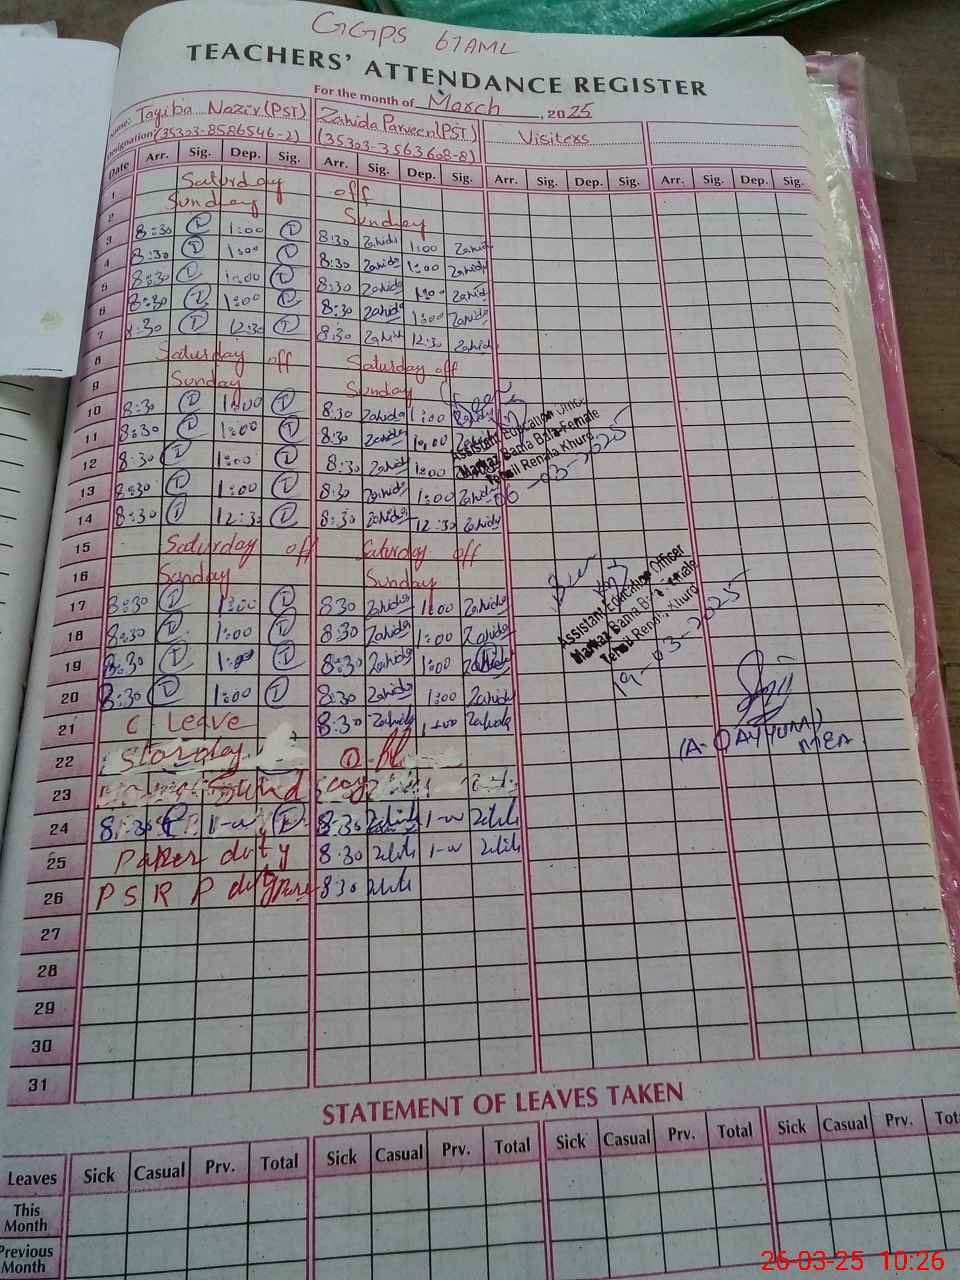 GGPS 67AML
TEACHERS' ATTENDANCE REGISTER
For the month of March, 2025
Name: Tayiba Nazir (PST) Zahida Parveen (PST) Visiters
Designation (35303-8586546-2) (35303-3563608-8)
Date Arr. Sig. Dep. Sig. Arr. Sig. Dep. Sig. Arr. Sig. Dep. Sig. Arr. Sig. Dep. Sig.
1 Saturday off
2 Sunday Sunday
3 8:30 T 1:00 T 8:30 Zahida 1:00 Zahida
4 8:30 T 1:00 T 8:30 Zahida 1:00 Zahida
5 8:30 T 1:00 T 8:30 Zahida 1:00 Zahida
6 8:30 T 1:00 T 8:30 Zahida 1:00 Zahida
7 8:30 T 12:30 T 8:30 Zahida 12:30 Zahida
8 Saturday off Saturday off
9 Sunday Sunday
10 8:30 T 1:00 T 8:30 Zahida 1:00 Zahida
11 8:30 T 1:00 T 8:30 Zahida 1:00 Zahida
12 8:30 T 1:00 T 8:30 Zahida 1:00 Zahida
13 8:30 T 1:00 T 8:30 Zahida 1:00 Zahida
14 8:30 T 12:30 T 8:30 Zahida 12:30 Zahida
Assistant Education Officer
Markaz Bama Bala-Female
Tehsil Renala Khurd
-03-2025
15 Saturday off Saturday off
16 Sunday Sunday
17 8:30 T 1:00 T 8:30 Zahida 1:00 Zahida
18 8:30 T 1:00 T 8:30 Zahida 1:00 Zahida
19 8:30 T 1:00 T 8:30 Zahida 1:00 Zahida
20 8:30 T 1:00 T 8:30 Zahida 1:00 Zahida
Assistant Education Officer
Markaz Bama Bala Female
Tehsil Renala Khurd
19-03-2025
21 C Leave 8:30 Zahida 1:00 Zahida
(A-QAYYUM)
MEA
22 Starday
23 Sund
24 8:30 T 1-00 T 8:30 Zahida 1-00 Zahida
25 Paper duty 8:30 Zahida 1-00 Zahida
26 P S R P duty 8:30 Zahida
27
28
29
30
31
STATEMENT OF LEAVES TAKEN
Leaves Sick Casual Prv. Total Sick Casual Prv. Total Sick Casual Prv. Total Sick Casual Prv.
This Month
Previous Month
26-03-25 10:26